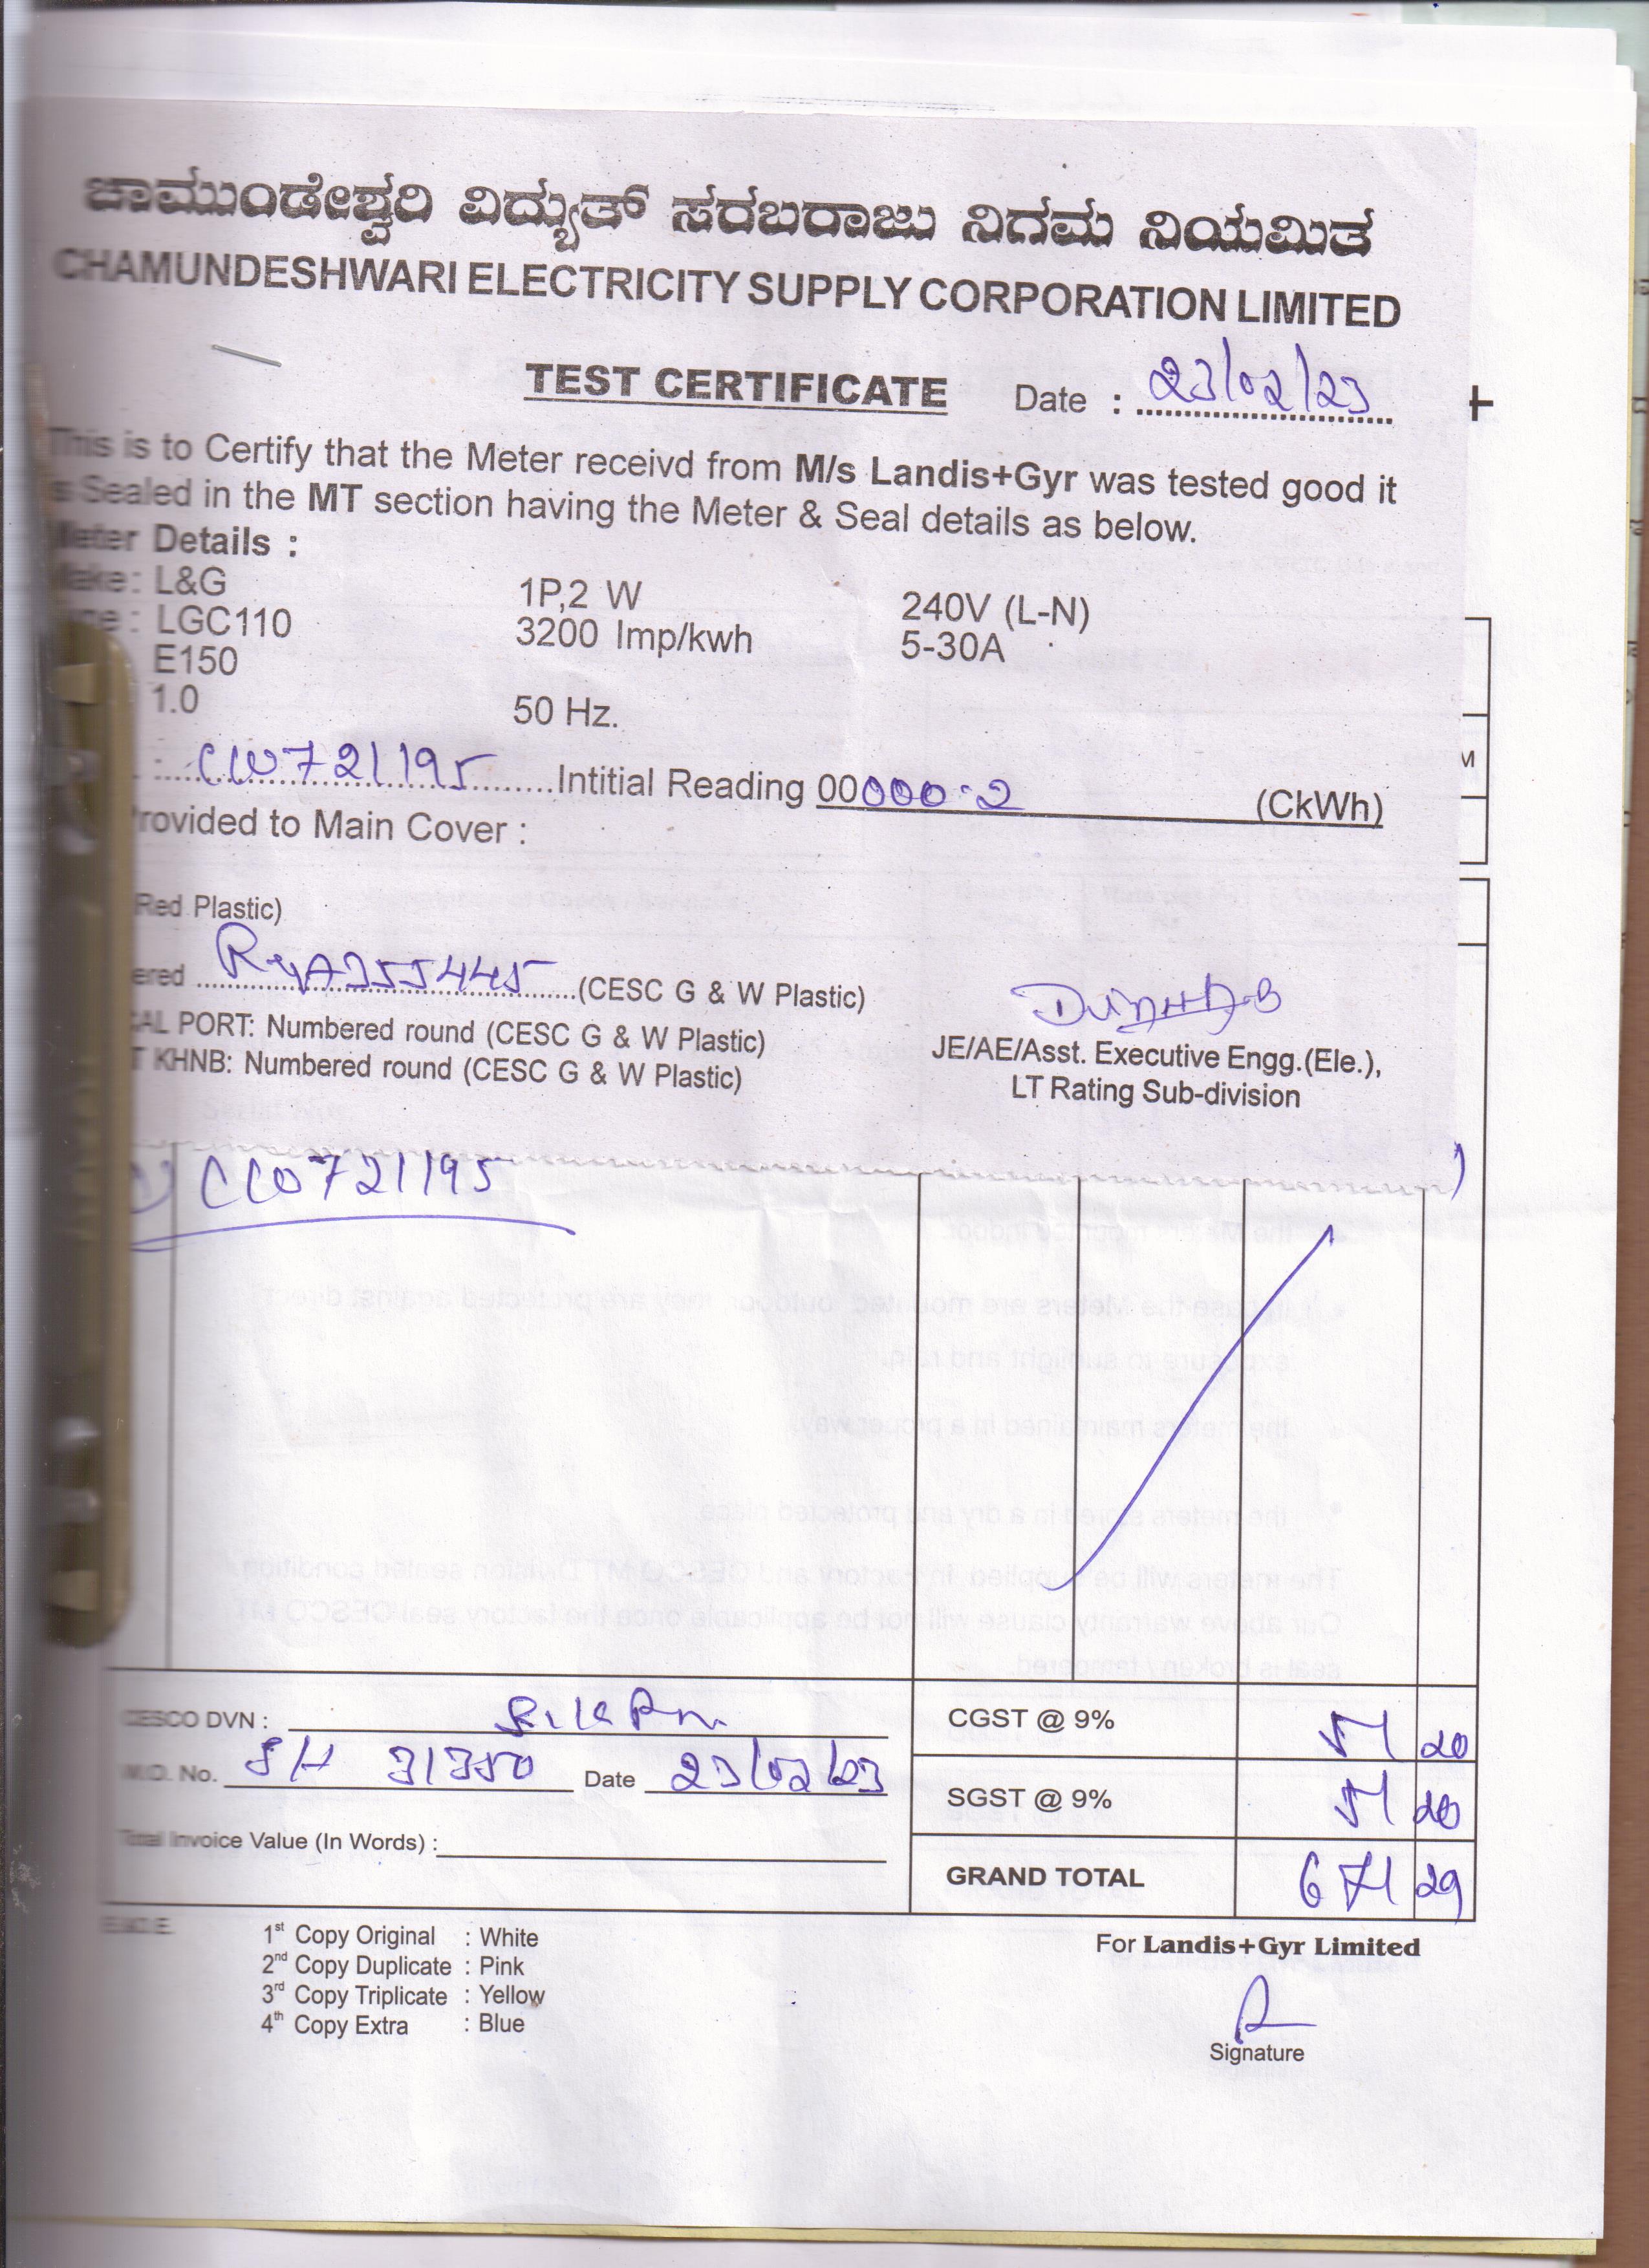 ಚಾಮುಂಡೇಶ್ವರಿ ವಿದ್ಯುತ್ ಸರಬರಾಜು ನಿಗಮ ನಿಯಮಿತ
CHAMUNDESHWARI ELECTRICITY SUPPLY CORPORATION LIMITED
TEST CERTIFICATE Date : 23/02/23
This is to Certify that the Meter receivd from M/s Landis+Gyr was tested good it
Sealed in the MT section having the Meter & Seal details as below.
Meter Details :
Make : L&G 1P,2 W 240V (L-N)
: LGC110 3200 Imp/kwh 5-30A
E150
1.0 50 Hz.
: CW721195 Intitial Reading 00000.2 (CkWh)
Provided to Main Cover :
(Red Plastic)
(CESC G & W Plastic)
PORT: Numbered round (CESC G & W Plastic)
KHNB: Numbered round (CESC G & W Plastic)
JE/AE/Asst. Executive Engg.(Ele.),
LT Rating Sub-division
CW721195
CESCO DVN :
No. 31350 Date 23/02/23
Total Invoice Value (In Words) :
CGST @ 9% 51 20
SGST @ 9% 51 20
GRAND TOTAL 671 29
1st Copy Original : White
2nd Copy Duplicate : Pink
3rd Copy Triplicate : Yellow
4th Copy Extra : Blue
For Landis+Gyr Limited
Signature